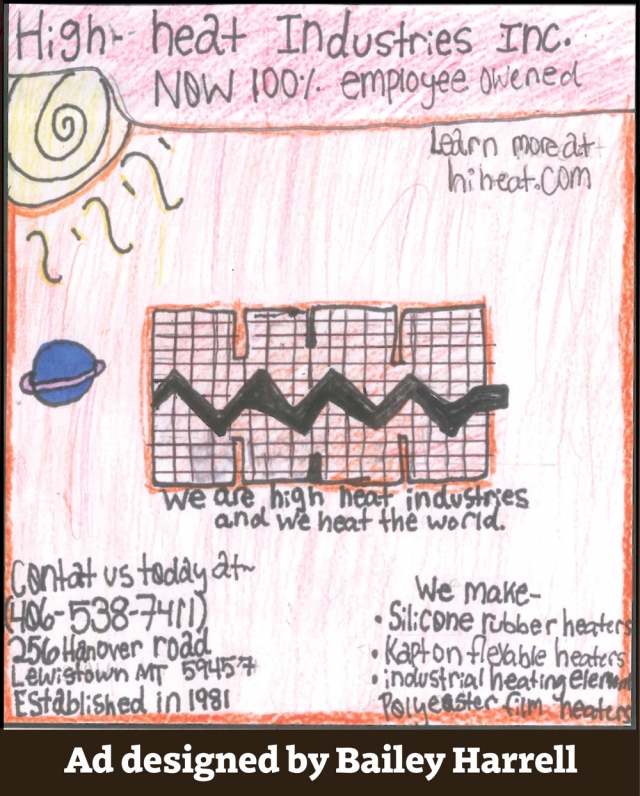 High-heat Industries Inc.
NOW 100% employee owened
Learn more at
hiheat.com
We are high heat industries
and we heat the world.
Contat us today at~
(406-538-7411)
256 Hanover road
Lewistown MT 59457
Established in 1981
We make-
• Silicone rubber heaters
• Kapton flexable heaters
• industrial heating elem
Polyeaster film heaters
Ad designed by Bailey Harrell